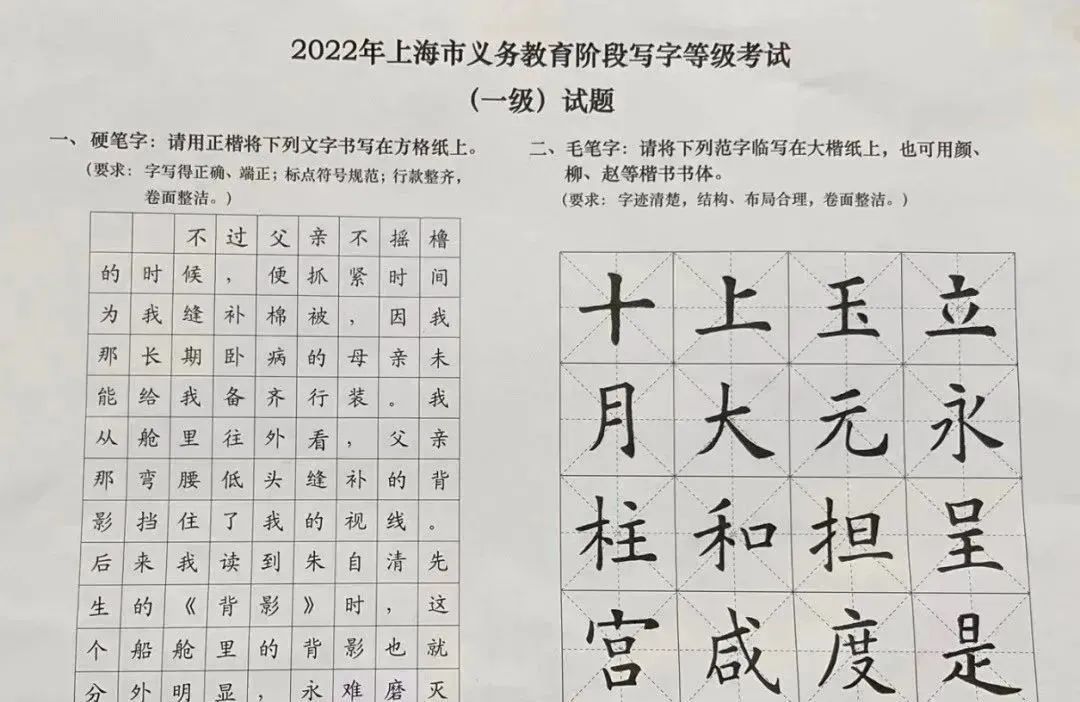 2022年上海市义务教育阶段写字等级考试
（一级）试题
一、硬笔字：请用正楷将下列文字书写在方格纸上。
（要求：字写得正确、端正；标点符号规范；行款整齐，
卷面整洁。）
不过父亲不摇橹
的时候，便抓紧时间
为我缝补棉被，因我
那长期卧病的母亲未
能给我备齐行装。我
从舱里往外看，父亲
那弯腰低头缝补的背
影挡住了我的视线。
后来我读到朱自清先
生的《背影》时，这
个船舱里的背影也就
分外明显，永难磨灭
二、毛笔字：请将下列范字临写在大楷纸上，也可用颜、
柳、赵等楷书书体。
（要求：字迹清楚，结构、布局合理，卷面整洁。）
十上玉立
月大元永
柱和担呈
宫咸度是